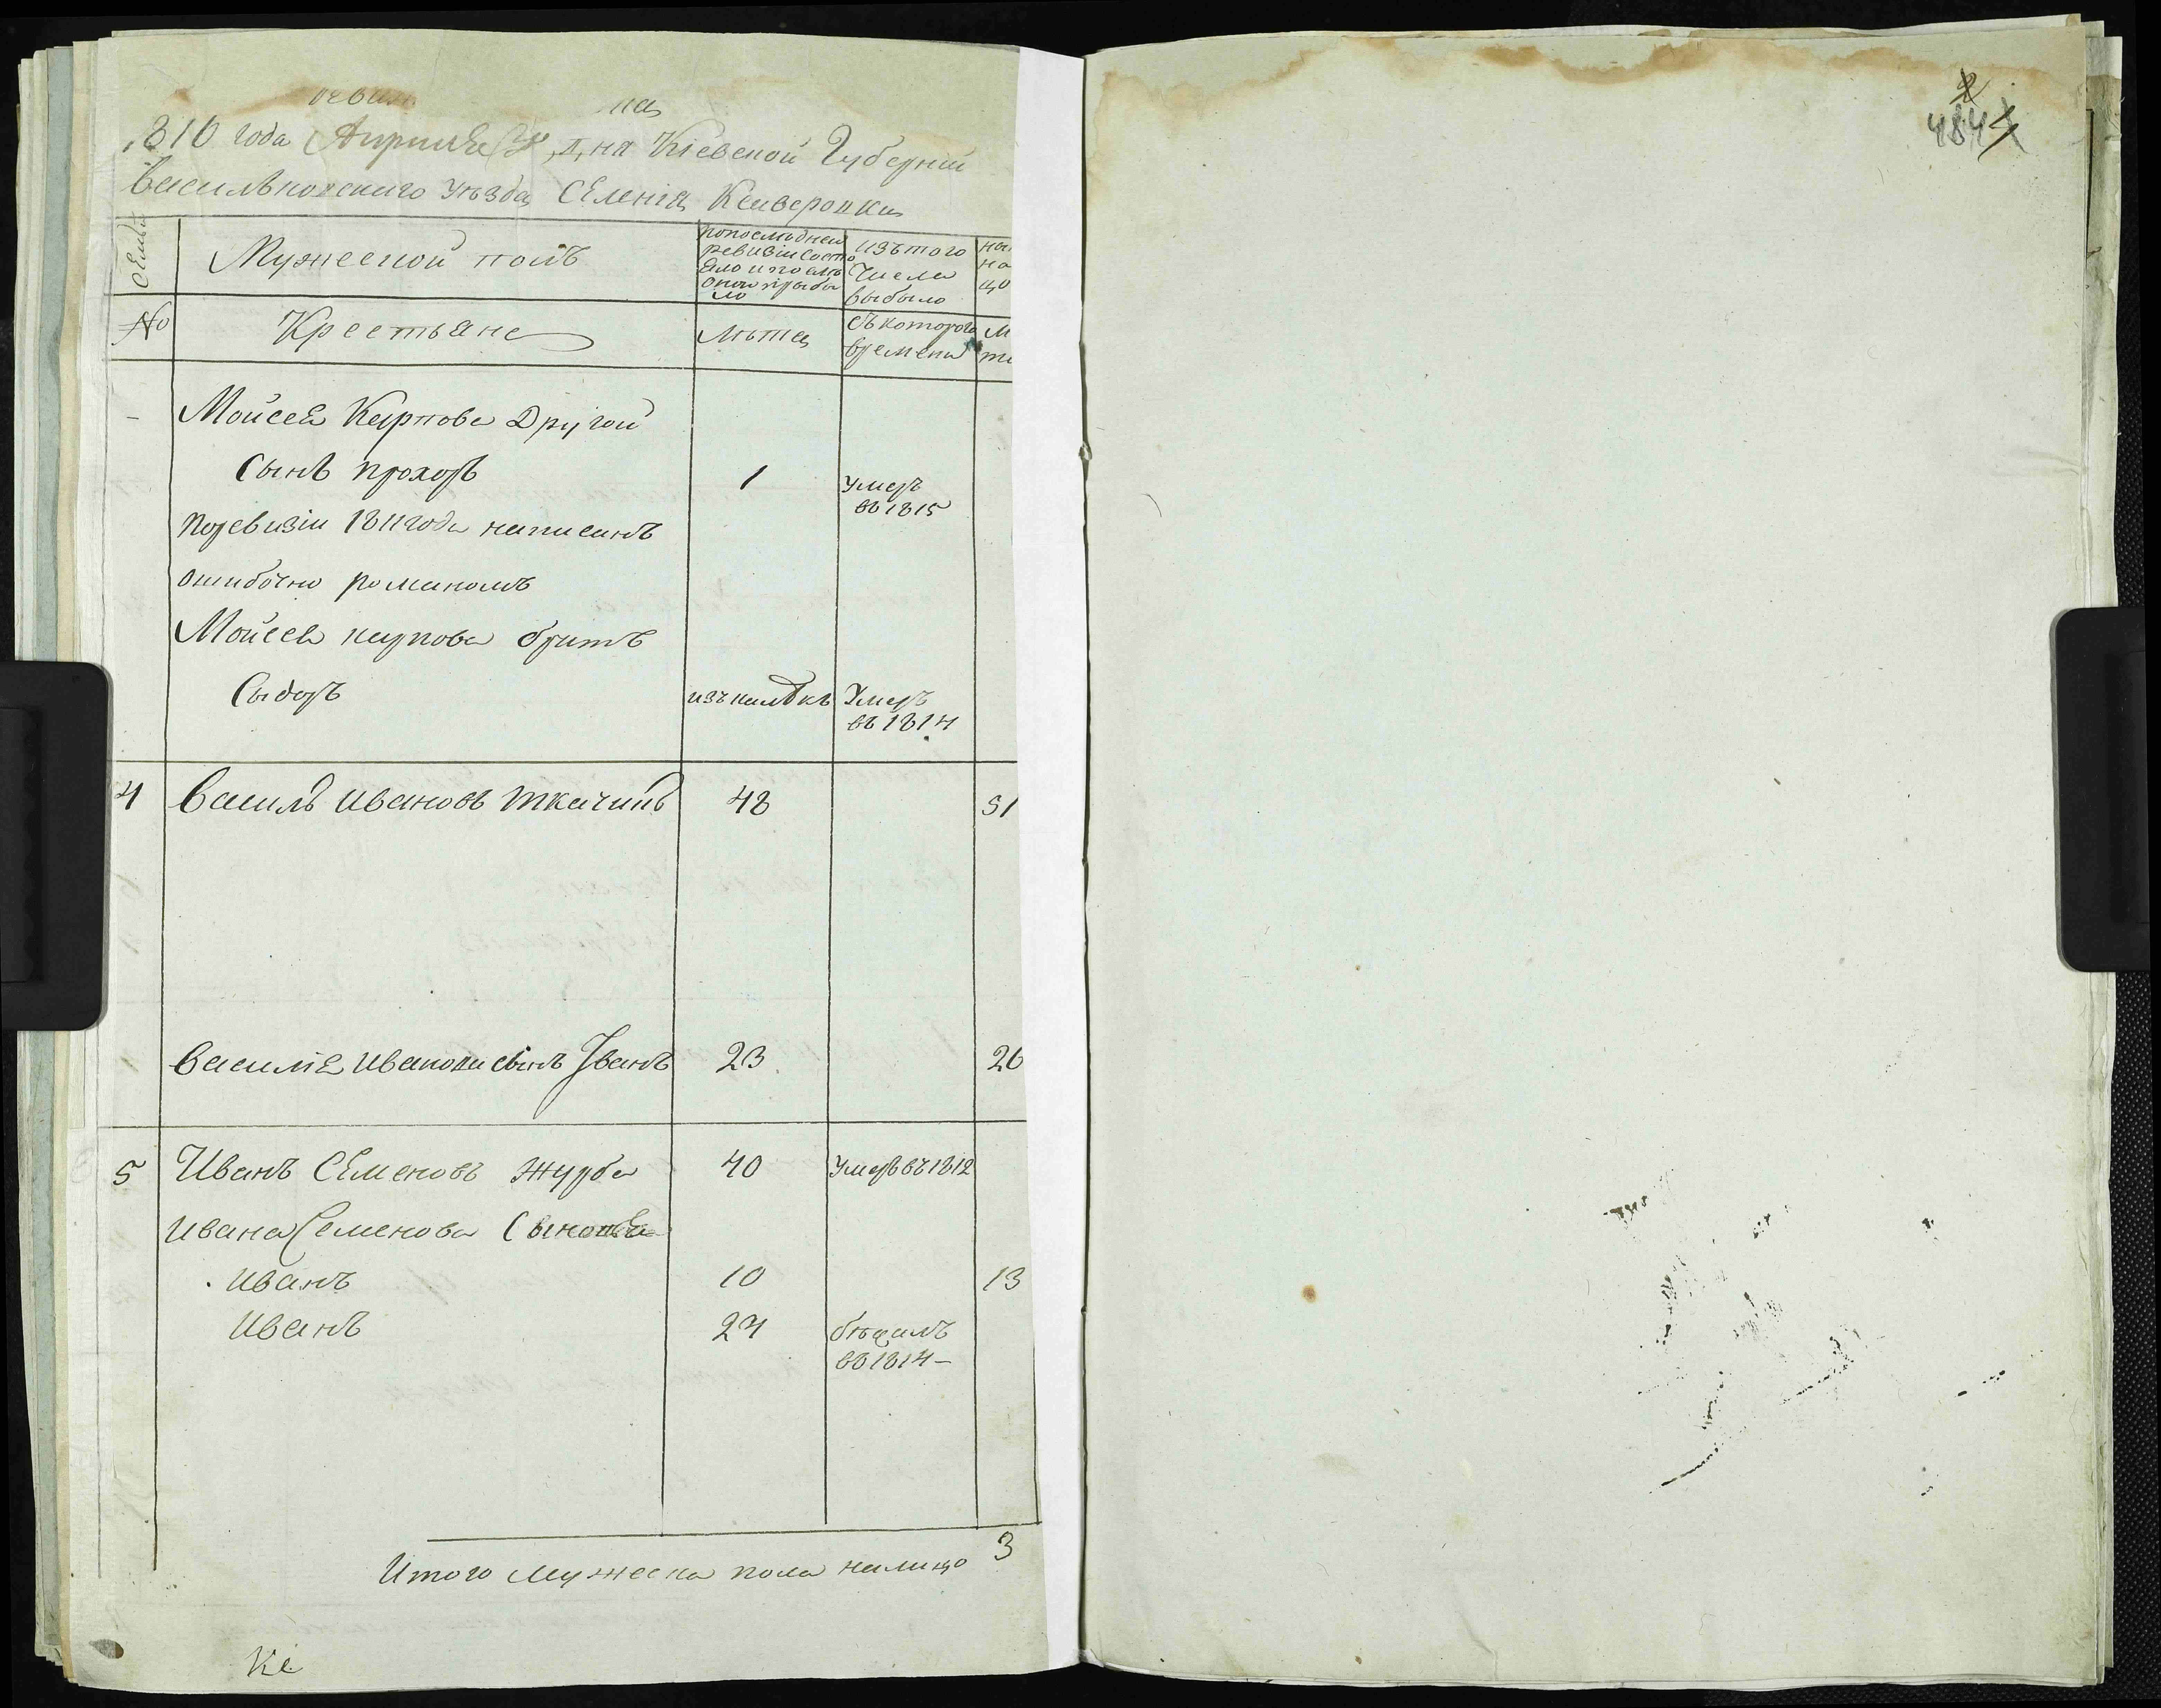 1816 года Апреля дня Кіевской Губерніи
Васильковского уѣзда Селенія Кейверовки
Семьи
Мужеской полъ
По последней ревизіи состояло и после оной прыбыло
Изъ того числа выбыло
№
Крестьяне
Лѣта
Съ которого времени
Мойсея Карпова Другой
Сынъ прохоръ 1 умеръ въ 1815
По ревизіи 1811 года написанъ
ошибочно романомъ
Мойсея карпова братъ
Сыдоръ Умеръ въ 1814
4 Василь Ивановъ Ткачинъ 48 51
Василя Иванова сынъ Іванъ 23 26
5 Иванъ Семеновъ Журба 40 Умеръ въ 1812
Ивана Семенова Сыновья
Иванъ 10 13
Иванъ 24 бѣжалъ въ 1814
Итого мужеска пола налицо 3
Ке
484